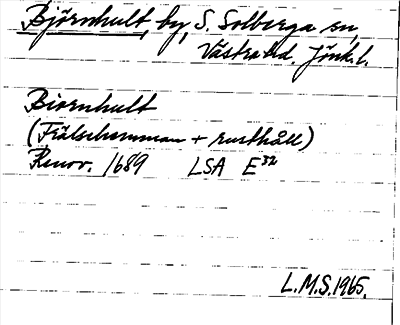 Björnhult, by, S. Solberga sn,
Västra hd. Jönk.l.
Biornhult
(Frälsehemman + rusthåll)
Renov. 1689 LSA E³²
L.M.S. 1965.